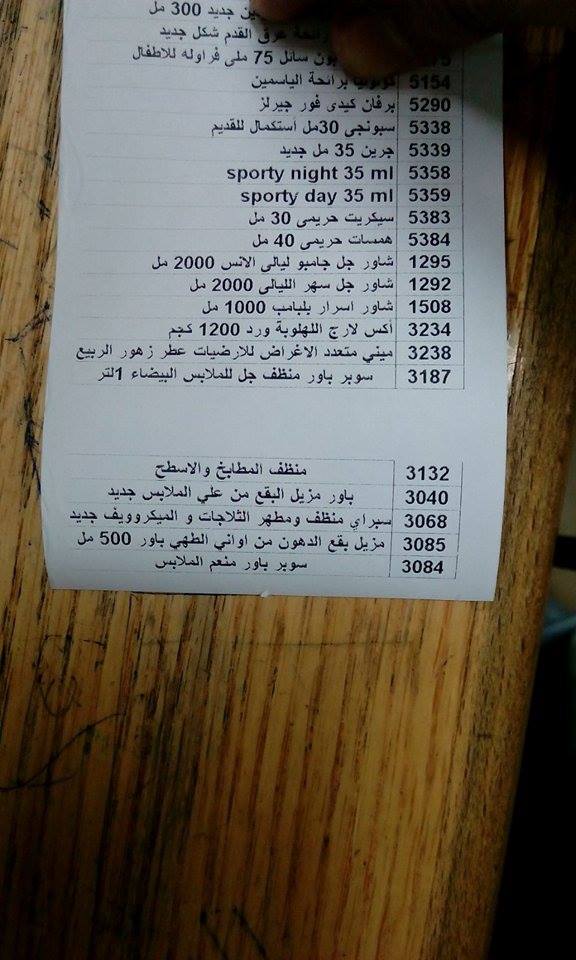 جديد 300 مل
رائحة عرق القدم شكل جديد
سائل 75 ملى فراوله للاطفال
5154 كولونيا برائحة الياسمين
5290 برفان كيدى فور جيرلز
5338 سبونجى 30مل أستكمال للقديم
5339 جرين 35 مل جديد
5358 sporty night 35 ml
5359 sporty day 35 ml
5383 سيكريت حريمى 30 مل
5384 همسات حريمى 40 مل
1295 شاور جل جامبو ليالى الانس 2000 مل
1292 شاور جل سهر الليالى 2000 مل
1508 شاور اسرار بلبامب 1000 مل
3234 أكس لارج اللهلوبة ورد 1200 كجم
3238 ميني متعدد الاغراض للارضيات عطر زهور الربيع
3187 سوبر باور منظف جل للملابس البيضاء 1لتر
3132 منظف المطابخ والاسطح
3040 باور مزيل البقع من علي الملابس جديد
3068 سبراي منظف ومطهر الثلاجات و الميكروويف جديد
3085 مزيل بقع الدهون من اواني الطهي باور 500 مل
3084 سوبر باور منعم الملابس